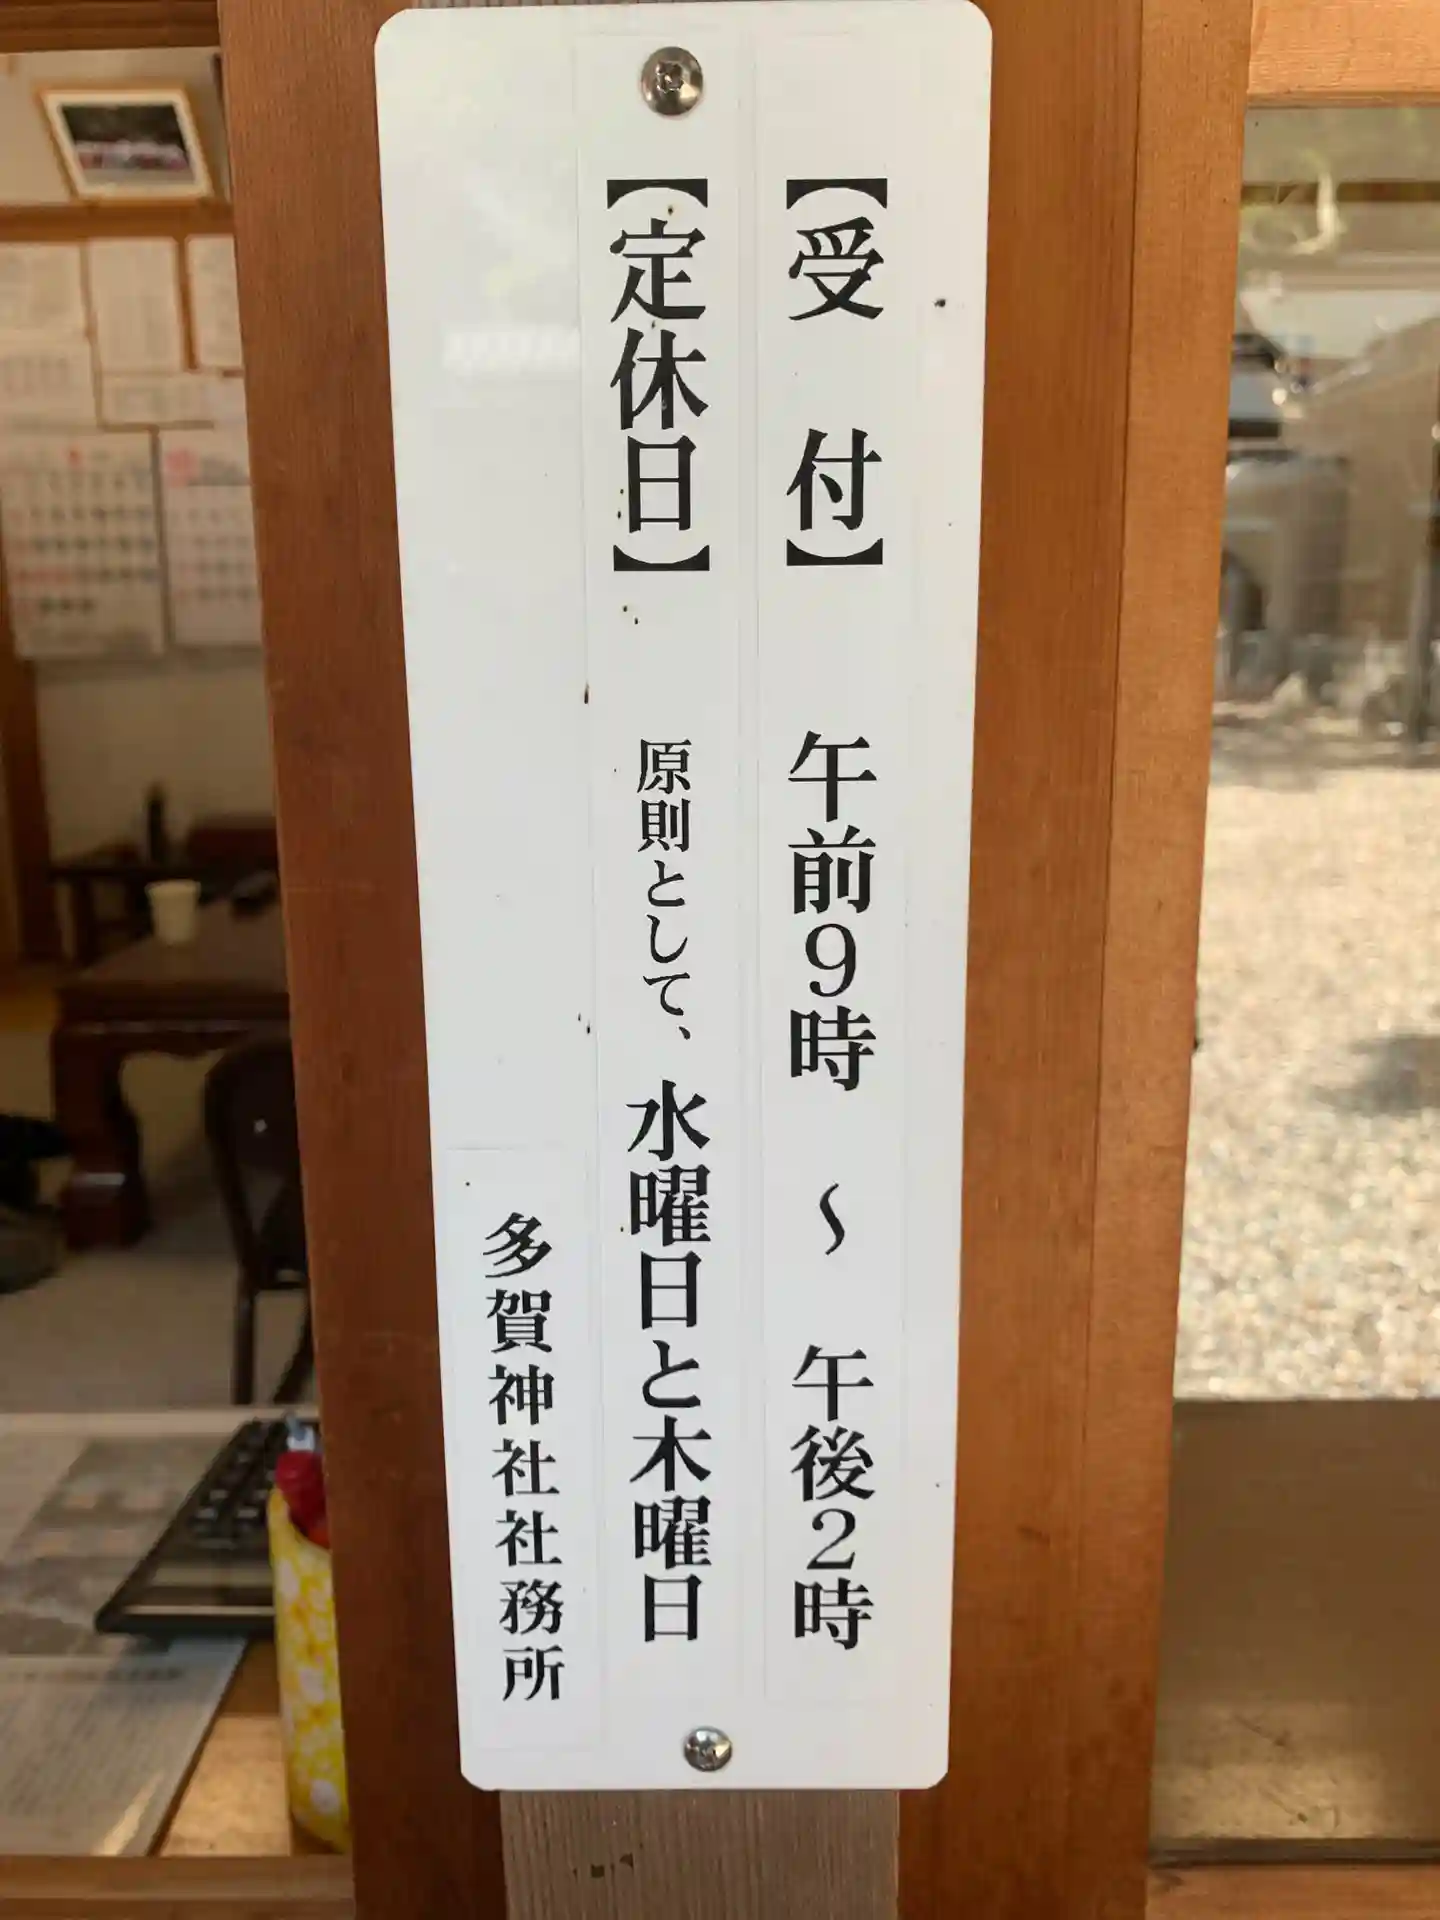 【受付】 午前9時 ～ 午後2時
【定休日】 原則として、水曜日と木曜日
多賀神社社務所